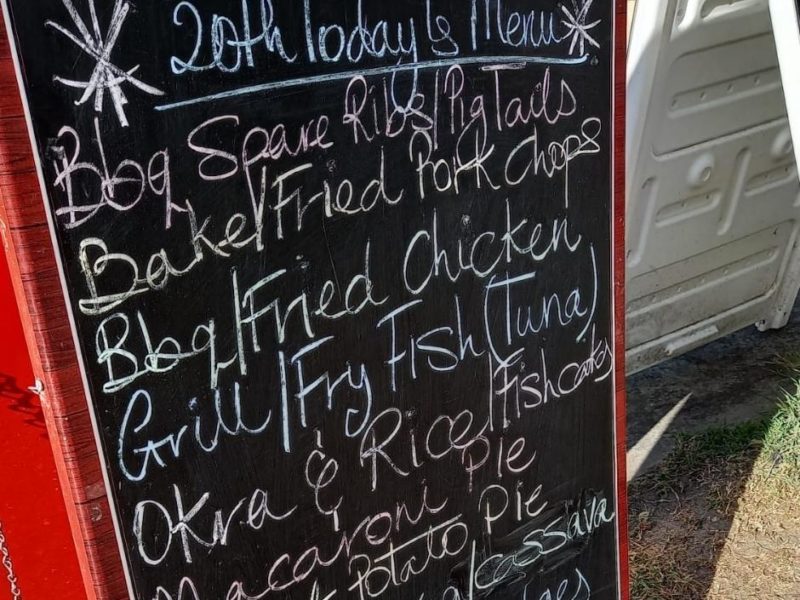 20th Today's Menu
Bbq Spare Ribs/PigTails
Bake/Fried Pork Chops
Bbq/Fried Chicken
Grill/Fry Fish (Tuna)
Okra & Rice/Fishcakes
Macaroni Pie
Potato Pie
/cassava